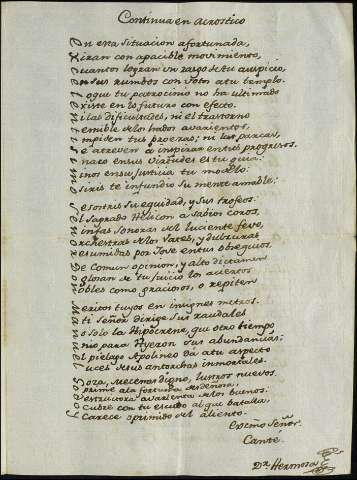 Continua en acrostico
En esta situacion afortunada,
Giran con apacible movimiento,
Quantos logran un rasgo de tu auspicio,
En sus rumbos con votos a tu templo.
que tu patrocinio no ha ultimado
Existe en lo futuro con efecto.
Ni las dificultades, ni el trastorno
temible de los hados avarientos,
Impiden tus proezas; ni las parcas,
Se atreven à inspirar entre progresos.
Sus virtudes es tu guia:
en su Justicia tu modelo:
Osiris te infundio su mente amable:
Sesostris su equidad, y sus trofeos.
El Sagrado Helicon a sabios coros,
Ninfas sonoras del luciente febo,
Orchestras de los Vates, y dulzuras
Resumidas por Jove en tus obsequios,
De comun opinion, y alto dictamen
de tu juicio los aciertos
Nobles como graciosos, o repiten
Meritos tuyos en insignes metros.
A ti Señor dirige sus raudales
No solo la Hipocrene, que otro tiempo
para Hyeron sus abundancias:
El pielago Apolineo da a tu aspecto
Luces de sus antorchas inmortales.
Goza, Mecenas digno, lustros nuevos.
Oprime a la fortuna
Destructora avarienta de los buenos:
Cubre con tu escudo al que batalla,
Y carece oprimido del aliento.
Excmo Señor.
Cante.
Dr. Hermosa